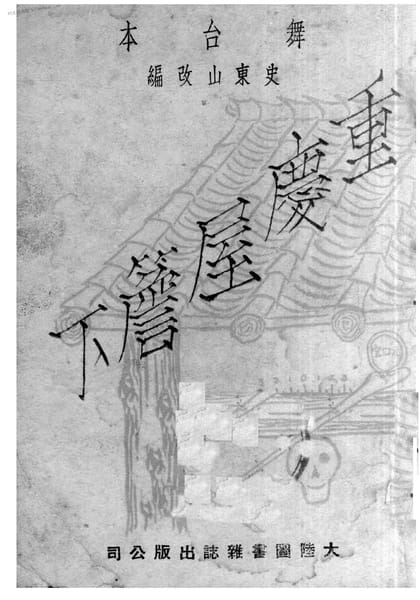 舞台本
史東山改編
重慶屋簷下
大陸圖書雜誌出版公司